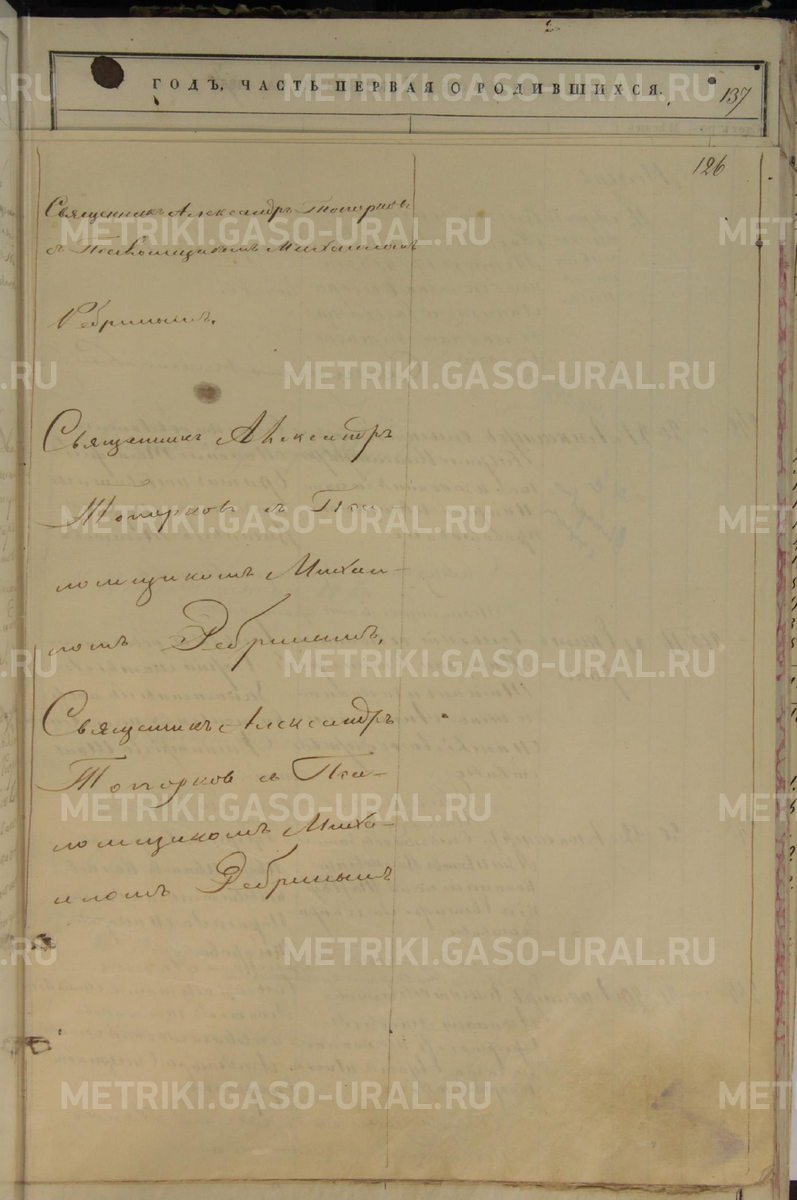 ГОДЪ, ЧАСТЬ ПЕРВАЯ О РОДИВШИХСЯ.
137
126
Священникъ Александръ Топорковъ
съ Псаломщикомъ Михаиломъ
Ребринымъ.
Священникъ Александръ
Топорковъ съ Пса-
ломщикомъ Михаи-
ломъ Ребринымъ,
Священникъ Александръ
Топорковъ съ Пса-
ломщикомъ Миха-
иломъ Ребринымъ
METRIKI.GASO-URAL.RU